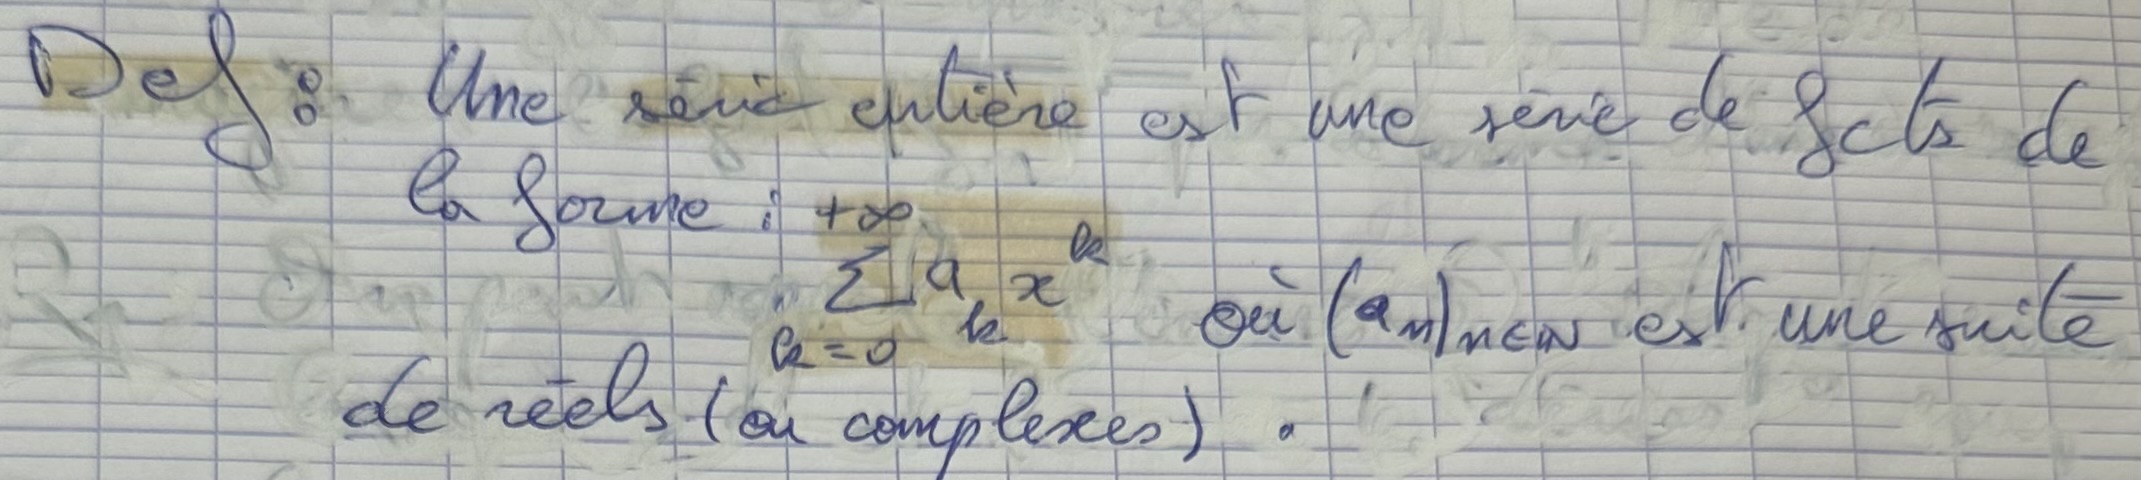 Def : Une série entière est une série de fcts de
la forme :
+∞
∑ a_k x^k où (a_n)_{n∈ℕ} est une suite
k=0
de réels (ou complexes).